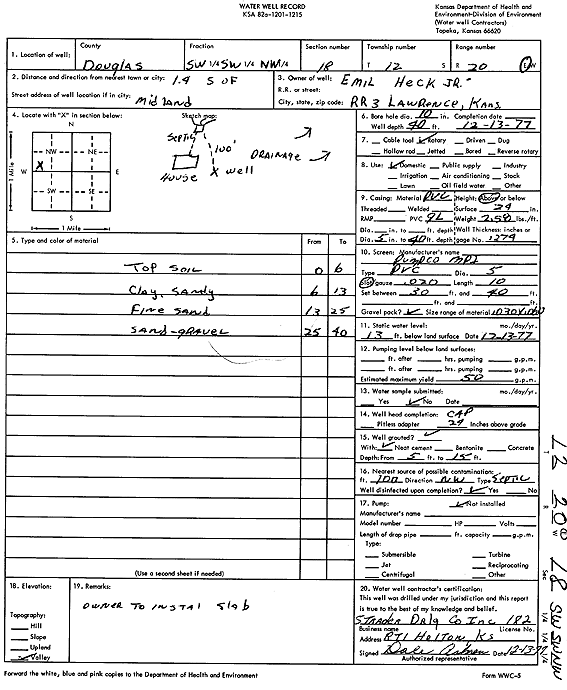 WATER WELL RECORD
KSA 82a-1201-1215
Kansas Department of Health and
Environment-Division of Environment
(Water well Contractors)
Topeka, Kansas 66620
1. Location of well:
County
Douglas
Fraction
SW 1/4 SW 1/4 NW 1/4
Section number
18
Township number
T 12 S
Range number
R 20 E/W
2. Distance and direction from nearest town or city: 1.4 S OF
Street address of well location if in city: Midland
3. Owner of well: EMIL HECK JR.
R.R. or street:
City, state, zip code: RR3 LAWRENCE, KANS.
4. Locate with "X" in section below:
N
NW NE
W X E
SW SE
S
1 Mile
1 Mile
Sketch map:
SEPTIC
100'
HOUSE
X well
DRAINAGE
5. Type and color of material From To
TOP SOIL 0 6
Clay, SANDY 6 13
FINE SAND 13 25
SAND-GRAVEL 25 40
(Use a second sheet if needed)
6. Bore hole dia. 10 in. Completion date
Well depth 40 ft. 12-13-77
7. Cable tool Rotary Driven Dug
Hollow rod Jetted Bored Reverse rotary
8. Use: Domestic Public supply Industry
Irrigation Air conditioning Stock
Lawn Oil field water Other
9. Casing: Material PVC Height: Above or below
Threaded Welded Surface 24 in.
RMP PVC GL Weight 2.58 lbs./ft.
Dia. in. to ft. depth Wall Thickness: inches or
Dia. 5 in. to 40 ft. depth gage No. .279
10. Screen: Manufacturer's name
Type PVC Dia. 5
Slot/gauze .020 Length 10
Set between 30 ft. and 40 ft.
ft. and ft.
Gravel pack? Size range of material
11. Static water level: mo./day/yr.
13 ft. below land surface Date 12-13-77
12. Pumping level below land surfaces:
ft. after hrs. pumping g.p.m.
ft. after hrs. pumping g.p.m.
Estimated maximum yield 50 g.p.m.
13. Water sample submitted: mo./day/yr.
Yes No Date
14. Well head completion: CAP
Pitless adapter 24 Inches above grade
15. Well grouted?
With: Neat cement Bentonite Concrete
Depth: From 5 ft. to 15 ft.
16. Nearest source of possible contamination:
ft. 100 Direction NW Type SEPTIC
Well disinfected upon completion? Yes No
17. Pump: Not installed
Manufacturer's name
Model number HP Volts
Length of drop pipe ft. capacity g.p.m.
Type:
Submersible Turbine
Jet Reciprocating
Centrifugal Other
18. Elevation:
Topography:
Hill
Slope
Upland
Valley
19. Remarks:
OWNER TO INSTAL Slab
20. Water well contractor's certification:
This well was drilled under my jurisdiction and this report
is true to the best of my knowledge and belief.
STRADER Drlg Co Inc 182
Business name License No.
Address RT1 Holton, Ks
Signed Date 12-13-77
Authorized representative
Forward the white, blue and pink copies to the Department of Health and Environment
Form WWC-5
T R W Sec 18 SW SW NW
1/4 1/4 1/4